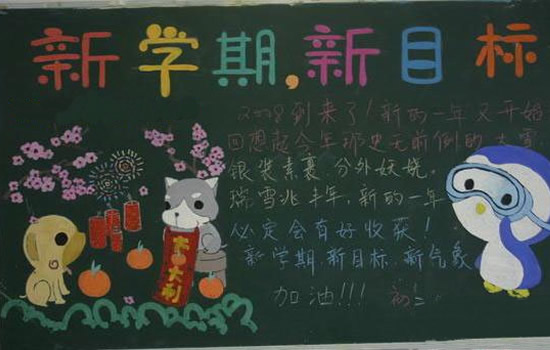 新学期,新目标
2008到来了!新的一年又开始
回想起今年那史无前例的大雪
银装素裹 分外妖娆,
瑞雪兆丰年,新的一年
必定会有好收获!
新学期 新目标 新气象
加油!!! 初
大利